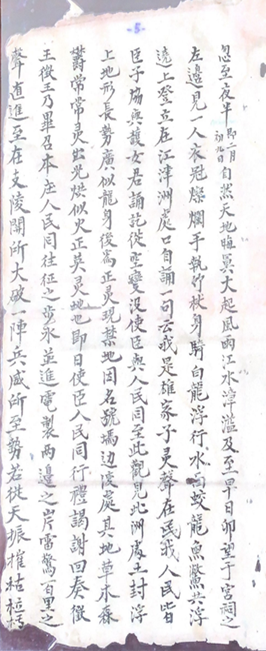 -5-
忽至夜半即二月初九日自然天地晦冥大起風雨江水漲溢及至早日卯望于宮祠之
左邊見一人衣冠燦爛手執竹杖身騎白龍浮行水面蛟龍魚鱉共浮
遶上登立在江津洲處口自誦一句云我是雄家子灵聲在民我人民皆
臣子與馥女君誦訖從空变没使臣與人民同至此觀見此洲处土封浮
上地形長勢廣似龍身後寓正灵現葉地因名號边處其地草木森
欝常常灵出光烘似火正英灵地也即日使臣人民同行禮謁謝回奏徵
王徵王乃畢召本庄人民同往征之步水並進電製兩邊之岸雷驚百里之
聲直進至在支陵關所大破一陣兵威所至勢若從天振摧枯拉